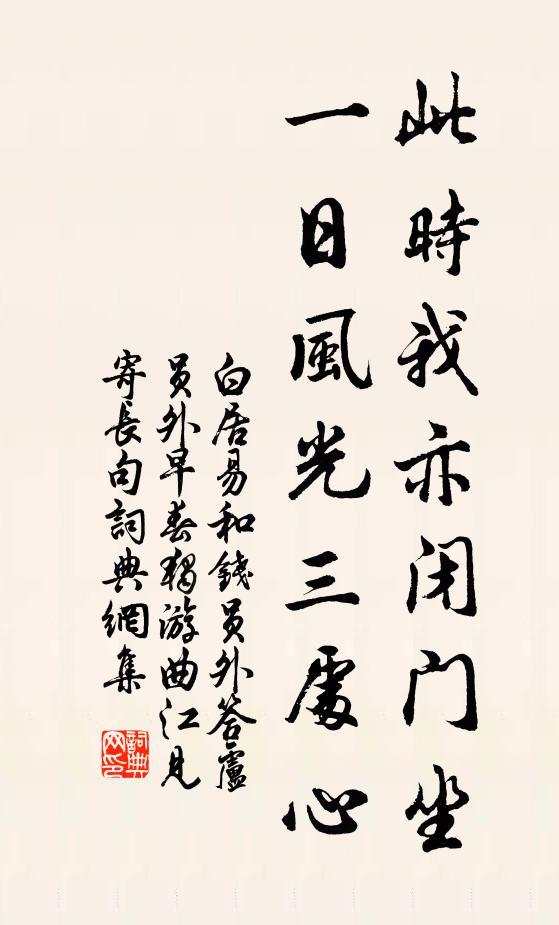 此時我亦閉門坐
一日風光三處心
白居易和錢員外答盧
員外早春獨游曲江見
寄長句詞典網集
詞典網印